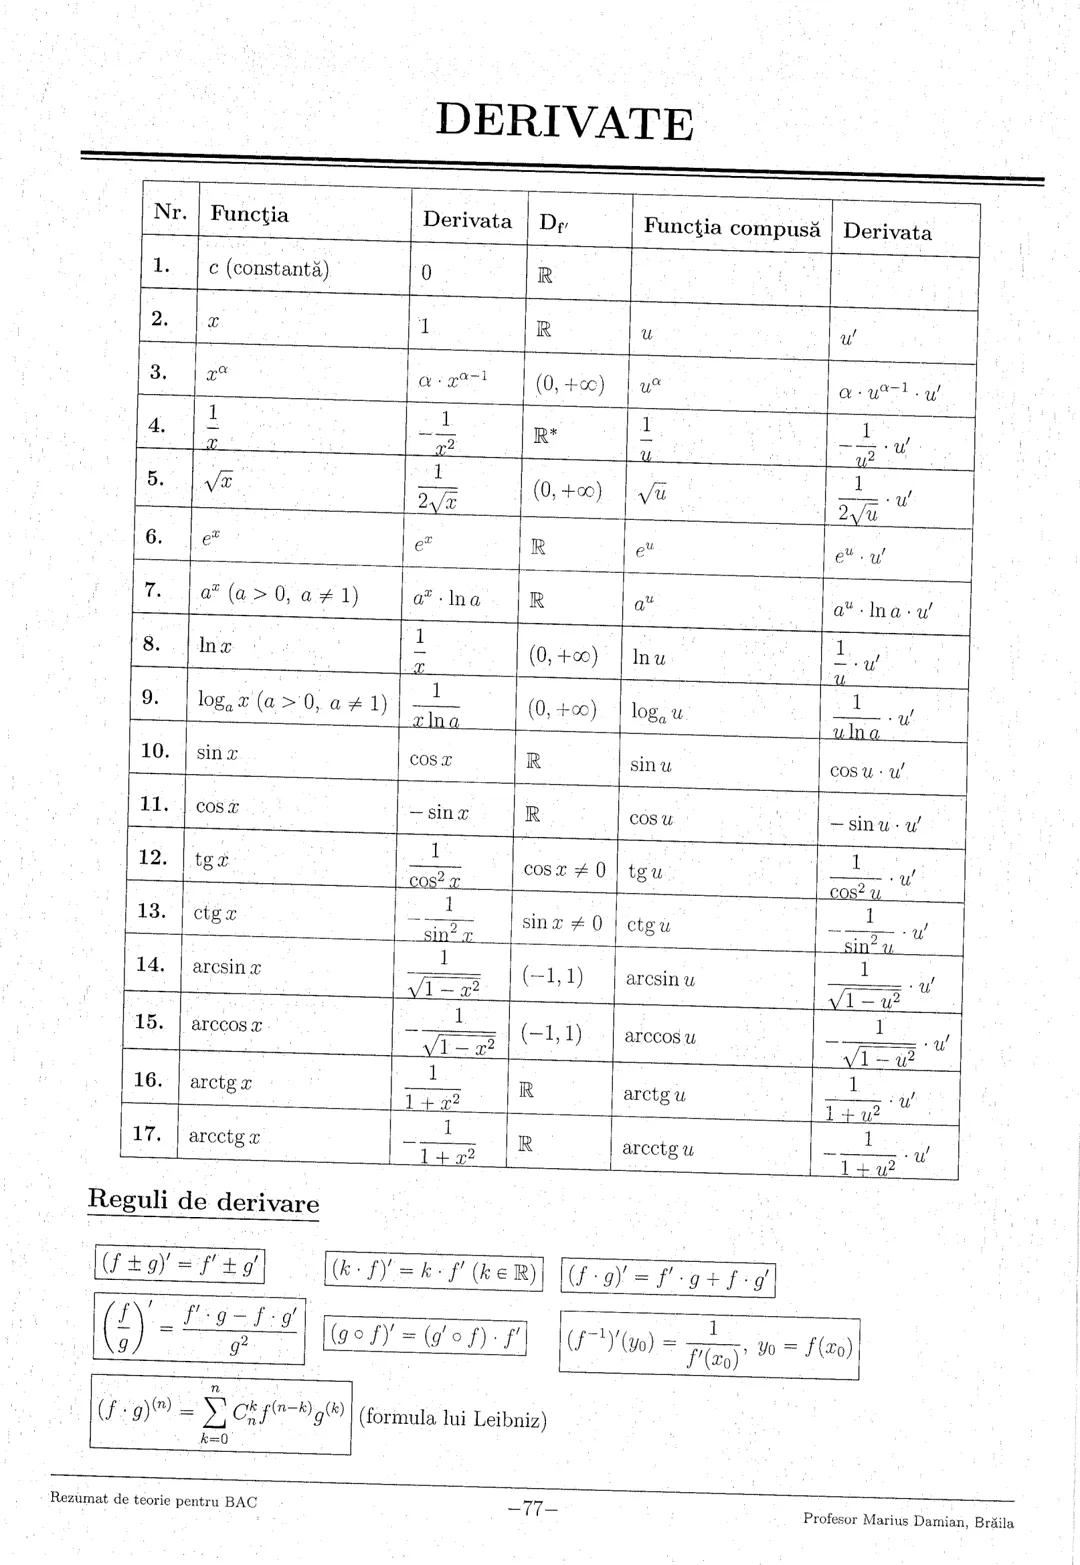 DERIVATE
Nr. Funcţia Derivata D_f′ Funcţia compusă Derivata
1. c (constantă) 0 ℝ
2. x 1 ℝ u u′
3. x^α α · x^(α−1) (0, +∞) u^α α · u^(α−1) · u′
4. 1/x −1/x² ℝ* 1/u −1/u² · u′
5. √x 1/(2√x) (0, +∞) √u 1/(2√u) · u′
6. e^x e^x ℝ e^u e^u · u′
7. a^x (a > 0, a ≠ 1) a^x · ln a ℝ a^u a^u · ln a · u′
8. ln x 1/x (0, +∞) ln u 1/u · u′
9. log_a x (a > 0, a ≠ 1) 1/(x ln a) (0, +∞) log_a u 1/(u ln a) · u′
10. sin x cos x ℝ sin u cos u · u′
11. cos x − sin x ℝ cos u − sin u · u′
12. tg x 1/(cos² x) cos x ≠ 0 tg u 1/(cos² u) · u′
13. ctg x −1/(sin² x) sin x ≠ 0 ctg u −1/(sin² u) · u′
14. arcsin x 1/√(1 − x²) (−1, 1) arcsin u 1/√(1 − u²) · u′
15. arccos x −1/√(1 − x²) (−1, 1) arccos u −1/√(1 − u²) · u′
16. arctg x 1/(1 + x²) ℝ arctg u 1/(1 + u²) · u′
17. arcctg x −1/(1 + x²) ℝ arcctg u −1/(1 + u²) · u′
Reguli de derivare
(f ± g)′ = f′ ± g′ (k · f)′ = k · f′ (k ∈ ℝ) (f · g)′ = f′ · g + f · g′
(f/g)′ = (f′ · g − f · g′)/g² (g ∘ f)′ = (g′ ∘ f) · f′ (f⁻¹)′(y₀) = 1/f′(x₀), y₀ = f(x₀)
(f · g)^(n) = ∑_{k=0}^{n} C_n^k f^(n−k) g^(k) (formula lui Leibniz)
Rezumat de teorie pentru BAC −77− Profesor Marius Damian, Brăila